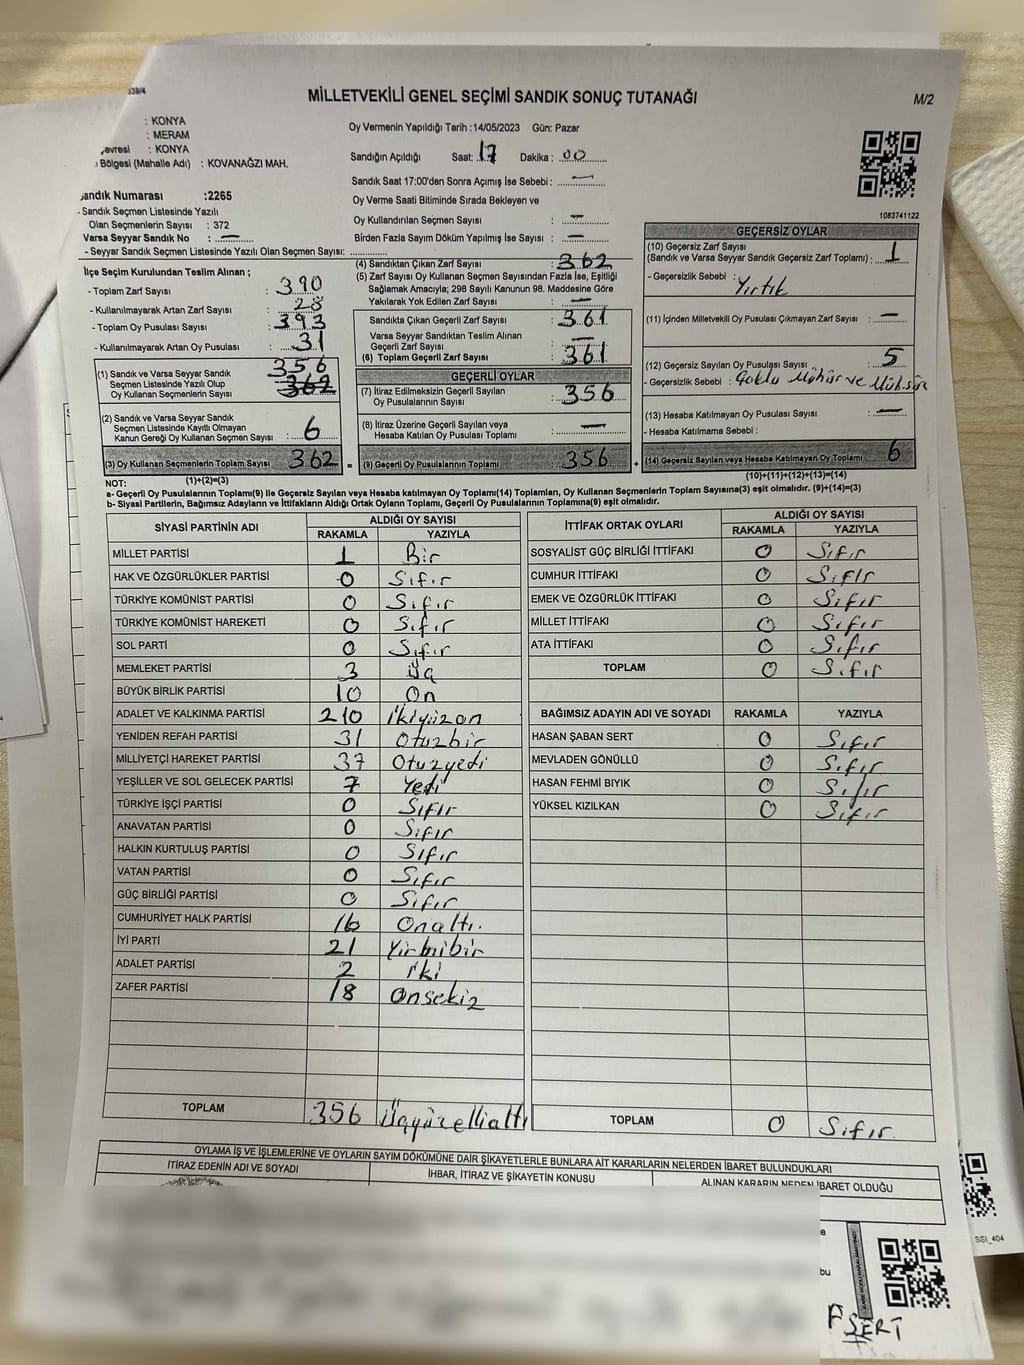 339/4
MİLLETVEKİLİ GENEL SEÇİMİ SANDIK SONUÇ TUTANAĞI
M/2
: KONYA
: MERAM
: KONYA
Bölgesi (Mahalle Adı) : KOVANAĞZI MAH.
Oy Vermenin Yapıldığı Tarih :14/05/2023 Gün: Pazar
Sandığın Açıldığı Saat: 17 Dakika : 00
Sandık Saat 17:00'den Sonra Açımış İse Sebebi : —
Oy Verme Saati Bitiminde Sırada Bekleyen ve
Oy Kullandırılan Seçmen Sayısı : —
Birden Fazla Sayım Döküm Yapılmış İse Sayısı : —
1083741122
Sandık Numarası :2265
- Sandık Seçmen Listesinde Yazılı
Olan Seçmenlerin Sayısı : 372
Varsa Seyyar Sandık No : —
- Seyyar Sandık Seçmen Listesinde Yazılı Olan Seçmen Sayısı:
İlçe Seçim Kurulundan Teslim Alınan ;
- Toplam Zarf Sayısı : 390
- Kullanılmayarak Artan Zarf Sayısı : 28
- Toplam Oy Pusulası Sayısı : 393
- Kullanılmayarak Artan Oy Pusulası : 31
(1) Sandık ve Varsa Seyyar Sandık
Seçmen Listesinde Yazılı Olup
Oy Kullanan Seçmenlerin Sayısı : 356
(2) Sandık ve Varsa Seyyar Sandık
Seçmen Listesinde Kayıtlı Olmayan
Kanun Gereği Oy Kullanan Seçmen Sayısı : 6
(3) Oy Kullanan Seçmenlerin Toplam Sayısı 362
(1)+(2)=(3)
(4) Sandıktan Çıkan Zarf Sayısı : 362
(5) Zarf Sayısı Oy Kullanan Seçmen Sayısından Fazla İse, Eşitliği
Sağlamak Amacıyla; 298 Sayılı Kanunun 98. Maddesine Göre
Yakılarak Yok Edilen Zarf Sayısı : —
Sandıkta Çıkan Geçerli Zarf Sayısı : 361
Varsa Seyyar Sandıktan Teslim Alınan
Geçerli Zarf Sayısı : —
(6) Toplam Geçerli Zarf Sayısı : 361
GEÇERLİ OYLAR
(7) İtiraz Edilmeksizin Geçerli Sayılan
Oy Pusulalarının Sayısı : 356
(8) İtiraz Üzerine Geçerli Sayılan veya
Hesaba Katılan Oy Pusulası Toplamı : —
= (9) Geçerli Oy Pusulalarının Toplamı 356 +
GEÇERSİZ OYLAR
(10) Geçersiz Zarf Sayısı
(Sandık ve Varsa Seyyar Sandık Geçersiz Zarf Toplamı) : 1
- Geçersizlik Sebebi : Yırtık
(11) İçinden Milletvekili Oy Pusulası Çıkmayan Zarf Sayısı : —
(12) Geçersiz Sayılan Oy Pusulası Sayısı : 5
- Geçersizlik Sebebi : Mühür ve
(13) Hesaba Katılmayan Oy Pusulası Sayısı : —
- Hesaba Katılmama Sebebi :
(14) Geçersiz Sayılan veya Hesaba Katılmayan Oy Toplamı : 6
(10)+(11)+(12)+(13)=(14)
NOT:
a- Geçerli Oy Pusulalarının Toplamı(9) ile Geçersiz Sayılan veya Hesaba katılmayan Oy Toplamı(14) Toplamları, Oy Kullanan Seçmenlerin Toplam Sayısına(3) eşit olmalıdır. (9)+(14)=(3)
b- Siyasi Partilerin, Bağımsız Adayların ve İttifakların Aldığı Ortak Oyların Toplamı, Geçerli Oy Pusulalarının Toplamına(9) eşit olmalıdır.
SİYASİ PARTİNİN ADI ALDIĞI OY SAYISI
RAKAMLA YAZIYLA
MİLLET PARTİSİ 1 Bir
HAK VE ÖZGÜRLÜKLER PARTİSİ 0 Sıfır
TÜRKİYE KOMÜNİST PARTİSİ 0 Sıfır
TÜRKİYE KOMÜNİST HAREKETİ 0 Sıfır
SOL PARTİ 0 Sıfır
MEMLEKET PARTİSİ 3 Üç
BÜYÜK BİRLİK PARTİSİ 10 On
ADALET VE KALKINMA PARTİSİ 210 İkiyüzon
YENİDEN REFAH PARTİSİ 31 Otuzbir
MİLLİYETÇİ HAREKET PARTİSİ 37 Otuzyedi
YEŞİLLER VE SOL GELECEK PARTİSİ 7 Yedi
TÜRKİYE İŞÇİ PARTİSİ 0 Sıfır
ANAVATAN PARTİSİ 0 Sıfır
HALKIN KURTULUŞ PARTİSİ 0 Sıfır
VATAN PARTİSİ 0 Sıfır
GÜÇ BİRLİĞİ PARTİSİ 0 Sıfır
CUMHURİYET HALK PARTİSİ 16 Onaltı.
İYİ PARTİ 21 Yirmibir
ADALET PARTİSİ 2 İki
ZAFER PARTİSİ 18 Onsekiz
TOPLAM 356 Üçyüzellialtı
İTTİFAK ORTAK OYLARI ALDIĞI OY SAYISI
RAKAMLA YAZIYLA
SOSYALİST GÜÇ BİRLİĞİ İTTİFAKI 0 Sıfır
CUMHUR İTTİFAKI 0 Sıfır
EMEK VE ÖZGÜRLÜK İTTİFAKI 0 Sıfır
MİLLET İTTİFAKI 0 Sıfır
ATA İTTİFAKI 0 Sıfır
TOPLAM 0 Sıfır
BAĞIMSIZ ADAYIN ADI VE SOYADI RAKAMLA YAZIYLA
HASAN ŞABAN SERT 0 Sıfır
MEVLADEN GÖNÜLLÜ 0 Sıfır
HASAN FEHMİ BIYIK 0 Sıfır
YÜKSEL KIZILKAN 0 Sıfır
TOPLAM 0 Sıfır
OYLAMA İŞ VE İŞLEMLERİNE VE OYLARIN SAYIM DÖKÜMÜNE DAİR ŞİKAYETLERLE BUNLARA AİT KARARLARIN NELERDEN İBARET BULUNDUKLARI
İTİRAZ EDENİN ADI VE SOYADI İHBAR, İTİRAZ VE ŞİKAYETİN KONUSU ALINAN KARARIN NEDEN İBARET OLDUĞU
SSI_404
SERT